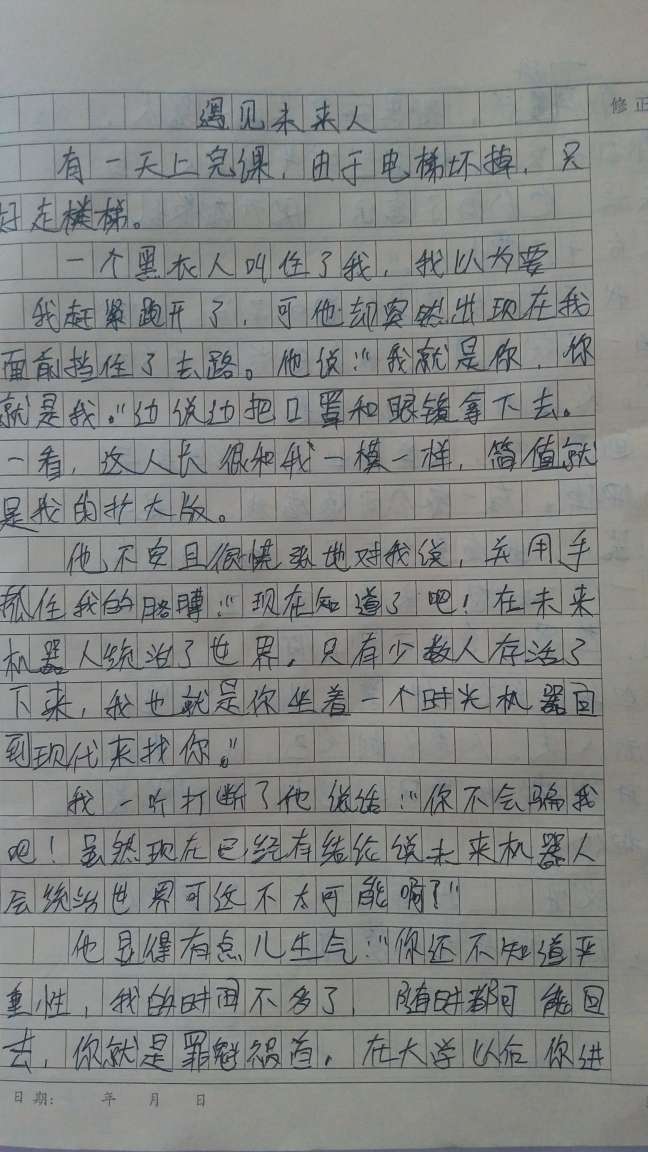 遇见未来人
修正
有一天上完课，由于电梯坏掉，只
好走楼梯。
一个黑衣人叫住了我，我以为要
我赶紧跑开了，可他却突然出现在我
面前挡住了去路。他说：“我就是你，你
就是我。”边说边把口罩和眼镜拿下去。
一看，这人长得和我一模一样，简值就
是我的扩大版。
他不安且很慌张地对我说，并用手
抓住我的胳膊：“现在知道了吧！在未来
机器人统治了世界，只有少数人存活了
下来，我也就是你坐着一个时光机器回
到现代来找你。”
我一听打断了他说话：“你不会骗我
吧！虽然现在已经有结论说未来机器人
会统治世界可这不太可能啊？”
他显得有点儿生气：“你还不知道严
重性，我的时间不多了，随时都可能回
去，你就是罪魁祸首，在大学以后你进
日期： 年 月 日